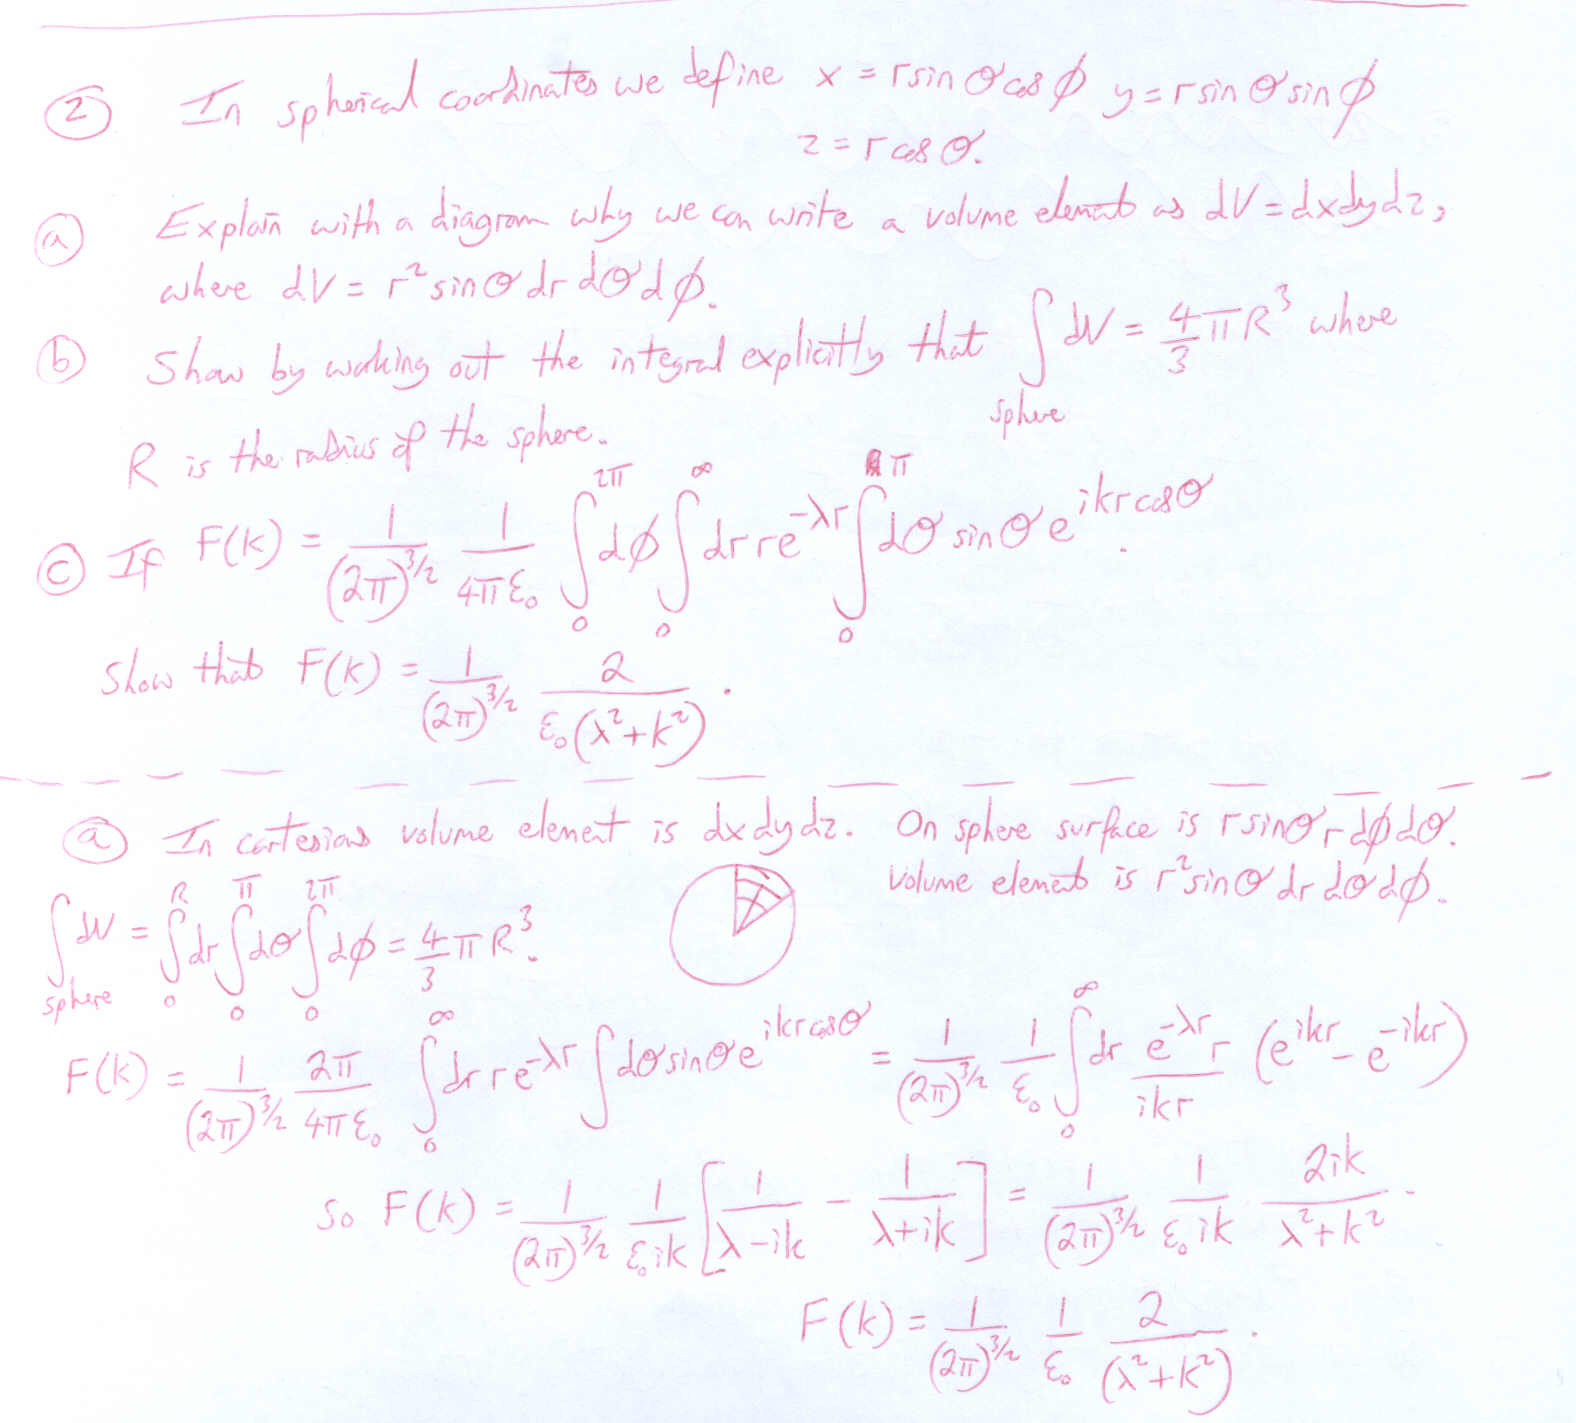 ② In spherical coordinates we define x = r sin θ cos φ y = r sin θ sin φ
z = r cos θ.
ⓐ Explain with a diagram why we can write a volume element as dV = dxdydz,
where dV = r² sin θ dr dθ dφ.
ⓑ Show by working out the integral explicitly that ∫_sphere dV = 4/3 π R³ where
R is the radius of the sphere.
ⓒ If F(k) = 1/(2π)^{3/2} 1/(4πε₀) ∫₀^{2π} dφ ∫₀^∞ dr r e^{-λr} ∫₀^π dθ sin θ e^{ikr cos θ}.
Show that F(k) = 1/(2π)^{3/2} 2/(ε₀(λ²+k²)).
ⓐ In cartesians volume element is dx dy dz. On sphere surface is r sin θ r dφ dθ.
Volume element is r² sin θ dr dθ dφ.
∫_sphere dV = ∫₀^R dr ∫₀^π dθ ∫₀^{2π} dφ = 4/3 π R³.
F(k) = 1/(2π)^{3/2} 2π/(4πε₀) ∫₀^∞ dr r e^{-λr} ∫ dθ sin θ e^{ikr cos θ} = 1/(2π)^{3/2} 1/ε₀ ∫₀^∞ dr e^{-λr} r/(ikr) (e^{ikr} - e^{-ikr})
So F(k) = 1/(2π)^{3/2} 1/(ε₀ik) [1/(λ-ik) - 1/(λ+ik)] = 1/(2π)^{3/2} 1/(ε₀ik) 2ik/(λ²+k²).
F(k) = 1/(2π)^{3/2} 1/ε₀ 2/(λ²+k²).